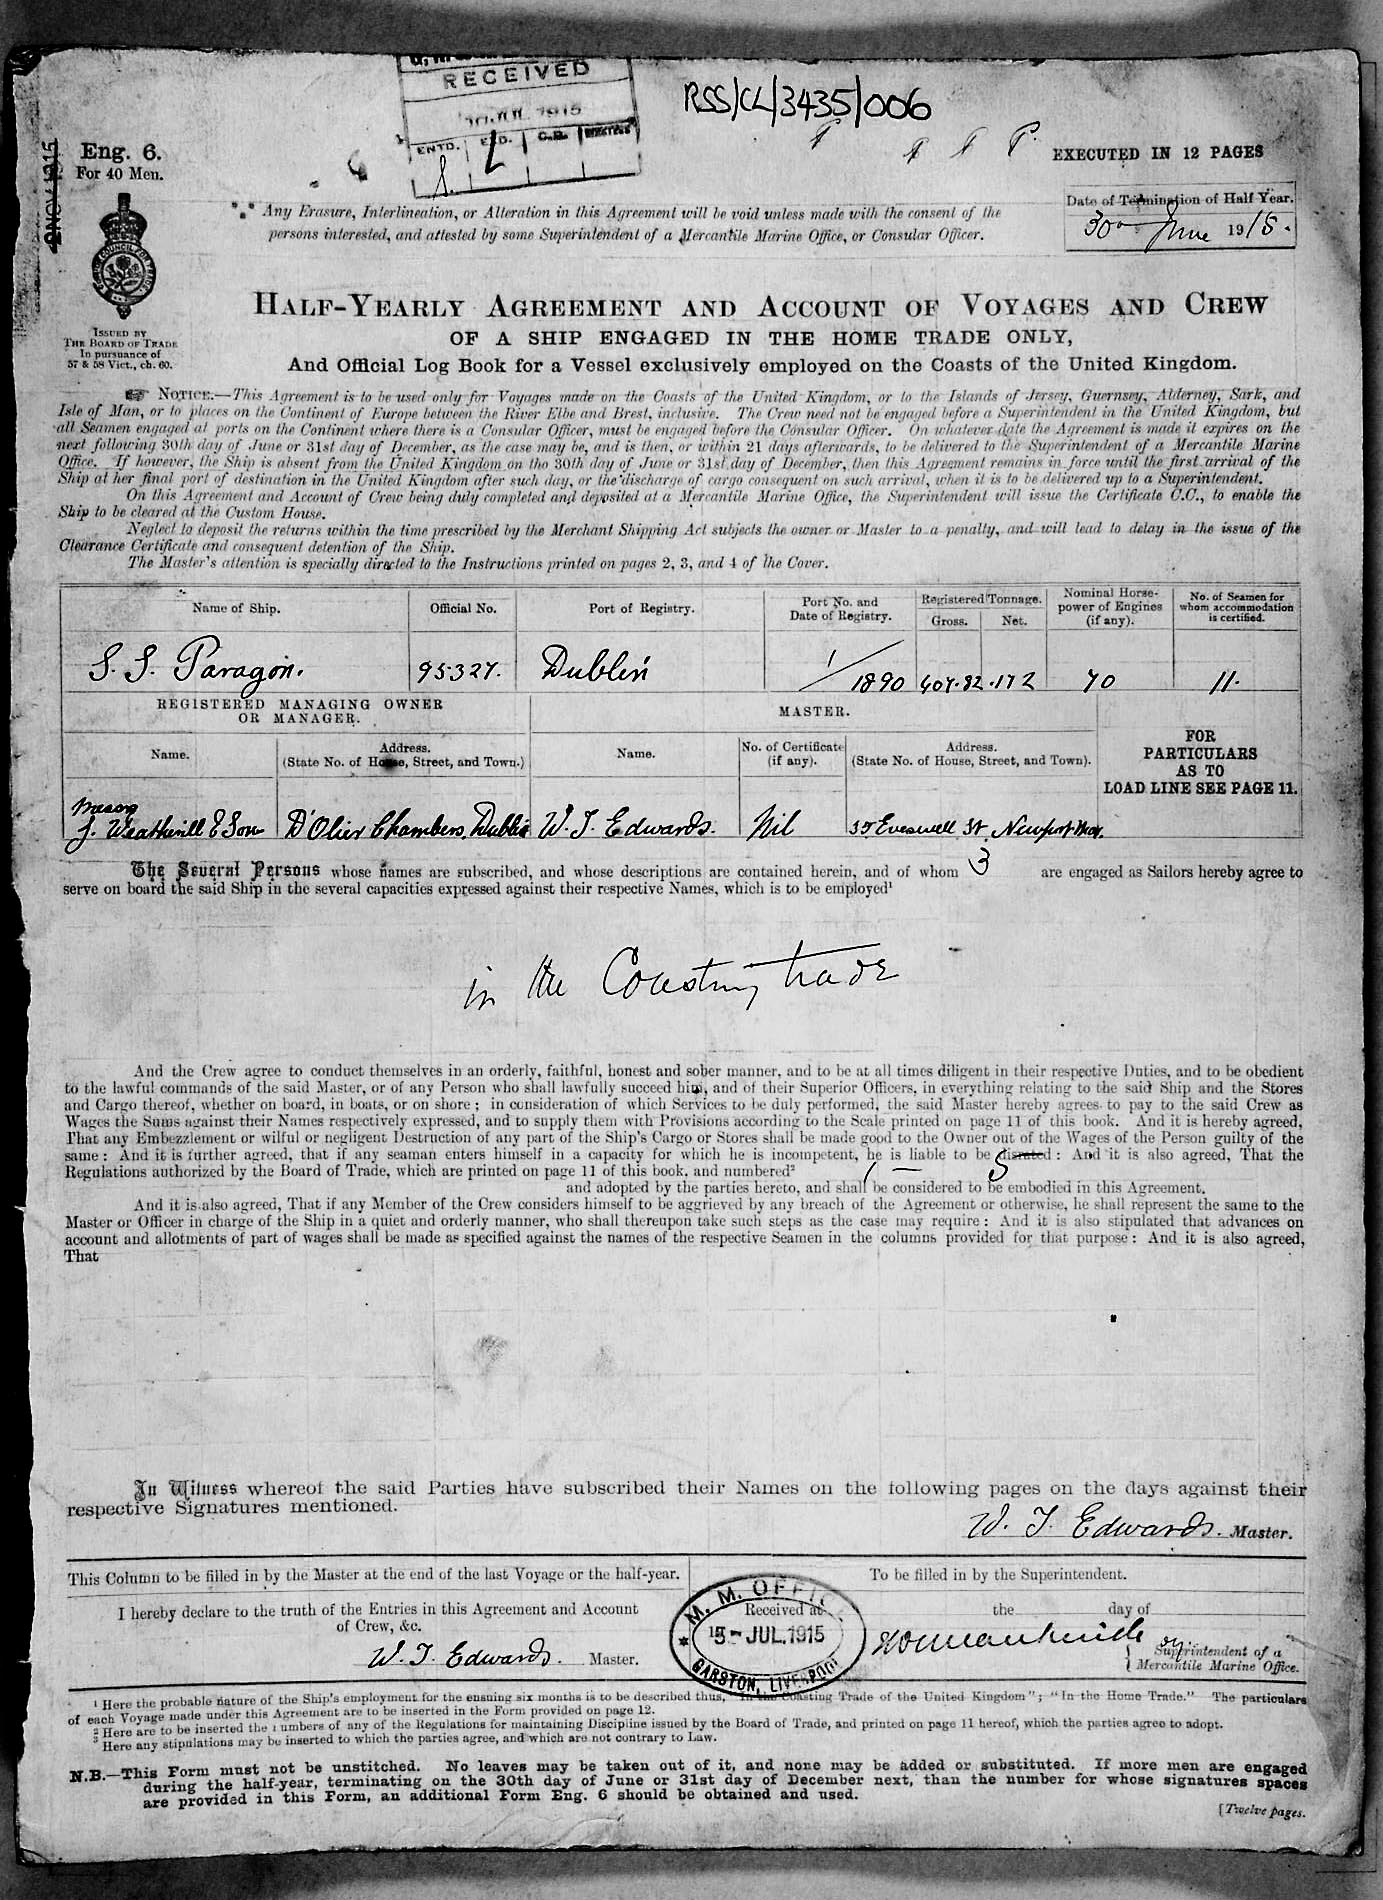 RECEIVED
JUL 1915
ENTD.
RSS/CL/3435/006
2 NOV 1915
Eng. 6.
For 40 Men.
EXECUTED IN 12 PAGES
Date of Termination of Half Year.
30 June 1915.
Any Erasure, Interlineation, or Alteration in this Agreement will be void unless made with the consent of the
persons interested, and attested by some Superintendent of a Mercantile Marine Office, or Consular Officer.
ISSUED BY
THE BOARD OF TRADE
In pursuance of
57 & 58 Vict., ch. 60.
HALF-YEARLY AGREEMENT AND ACCOUNT OF VOYAGES AND CREW
OF A SHIP ENGAGED IN THE HOME TRADE ONLY,
And Official Log Book for a Vessel exclusively employed on the Coasts of the United Kingdom.
NOTICE.—This Agreement is to be used only for Voyages made on the Coasts of the United Kingdom, or to the Islands of Jersey, Guernsey, Alderney, Sark, and
Isle of Man, or to places on the Continent of Europe between the River Elbe and Brest, inclusive. The Crew need not be engaged before a Superintendent in the United Kingdom, but
all Seamen engaged at ports on the Continent where there is a Consular Officer, must be engaged before the Consular Officer. On whatever date the Agreement is made it expires on the
next following 30th day of June or 31st day of December, as the case may be, and is then, or within 21 days afterwards, to be delivered to the Superintendent of a Mercantile Marine
Office. If however, the Ship is absent from the United Kingdom on the 30th day of June or 31st day of December, then this Agreement remains in force until the first arrival of the
Ship at her final port of destination in the United Kingdom after such day, or the discharge of cargo consequent on such arrival, when it is to be delivered up to a Superintendent.
On this Agreement and Account of Crew being duly completed and deposited at a Mercantile Marine Office, the Superintendent will issue the Certificate C.C., to enable the
Ship to be cleared at the Custom House.
Neglect to deposit the returns within the time prescribed by the Merchant Shipping Act subjects the owner or Master to a penalty, and will lead to delay in the issue of the
Clearance Certificate and consequent detention of the Ship.
The Master's attention is specially directed to the Instructions printed on pages 2, 3, and 4 of the Cover.
Name of Ship.
Official No.
Port of Registry.
Port No. and
Date of Registry.
Registered Tonnage.
Gross.
Net.
Nominal Horse-
power of Engines
(if any).
No. of Seamen for
whom accommodation
is certified.
S. S. Paragon.
95327.
Dublin
1/1890
407.82
.172
70
11.
REGISTERED MANAGING OWNER
OR MANAGER.
MASTER.
FOR
PARTICULARS
AS TO
LOAD LINE SEE PAGE 11.
Name.
Address.
(State No. of House, Street, and Town.)
Name.
No. of Certificate
(if any).
Address.
(State No. of House, Street, and Town).
J. Weatherill & Son
D'Olier Chambers, Dublin
W. T. Edwards.
Nil
Eveswell St, Newport Mon.
The Several Persons whose names are subscribed, and whose descriptions are contained herein, and of whom 3 are engaged as Sailors hereby agree to
serve on board the said Ship in the several capacities expressed against their respective Names, which is to be employed¹
in the Coasting trade
And the Crew agree to conduct themselves in an orderly, faithful, honest and sober manner, and to be at all times diligent in their respective Duties, and to be obedient
to the lawful commands of the said Master, or of any Person who shall lawfully succeed him, and of their Superior Officers, in everything relating to the said Ship and the Stores
and Cargo thereof, whether on board, in boats, or on shore; in consideration of which Services to be duly performed, the said Master hereby agrees to pay to the said Crew as
Wages the Sums against their Names respectively expressed, and to supply them with Provisions according to the Scale printed on page 11 of this book. And it is hereby agreed,
That any Embezzlement or wilful or negligent Destruction of any part of the Ship's Cargo or Stores shall be made good to the Owner out of the Wages of the Person guilty of the
same: And it is further agreed, that if any seaman enters himself in a capacity for which he is incompetent, he is liable to be disrated: And it is also agreed, That the
Regulations authorized by the Board of Trade, which are printed on page 11 of this book, and numbered² 1 — 5
and adopted by the parties hereto, and shall be considered to be embodied in this Agreement.
And it is also agreed, That if any Member of the Crew considers himself to be aggrieved by any breach of the Agreement or otherwise, he shall represent the same to the
Master or Officer in charge of the Ship in a quiet and orderly manner, who shall thereupon take such steps as the case may require: And it is also stipulated that advances on
account and allotments of part of wages shall be made as specified against the names of the respective Seamen in the columns provided for that purpose: And it is also agreed,
That
In Witness whereof the said Parties have subscribed their Names on the following pages on the days against their
respective Signatures mentioned.
W. T. Edwards. Master.
This Column to be filled in by the Master at the end of the last Voyage or the half-year.
To be filled in by the Superintendent.
I hereby declare to the truth of the Entries in this Agreement and Account
of Crew, &c.
W. T. Edwards. Master.
M. M. OFFICE
Received at
5 - JUL. 1915
GARSTON, LIVERPOOL
the day of
Superintendent of a
Mercantile Marine Office.
¹ Here the probable nature of the Ship's employment for the ensuing six months is to be described thus, "In the Coasting Trade of the United Kingdom"; "In the Home Trade." The particulars
of each Voyage made under this Agreement are to be inserted in the Form provided on page 12.
² Here are to be inserted the numbers of any of the Regulations for maintaining Discipline issued by the Board of Trade, and printed on page 11 hereof, which the parties agree to adopt.
³ Here any stipulations may be inserted to which the parties agree, and which are not contrary to Law.
N.B.—This Form must not be unstitched. No leaves may be taken out of it, and none may be added or substituted. If more men are engaged
during the half-year, terminating on the 30th day of June or 31st day of December next, than the number for whose signatures spaces
are provided in this Form, an additional Form Eng. 6 should be obtained and used.
[Twelve pages.